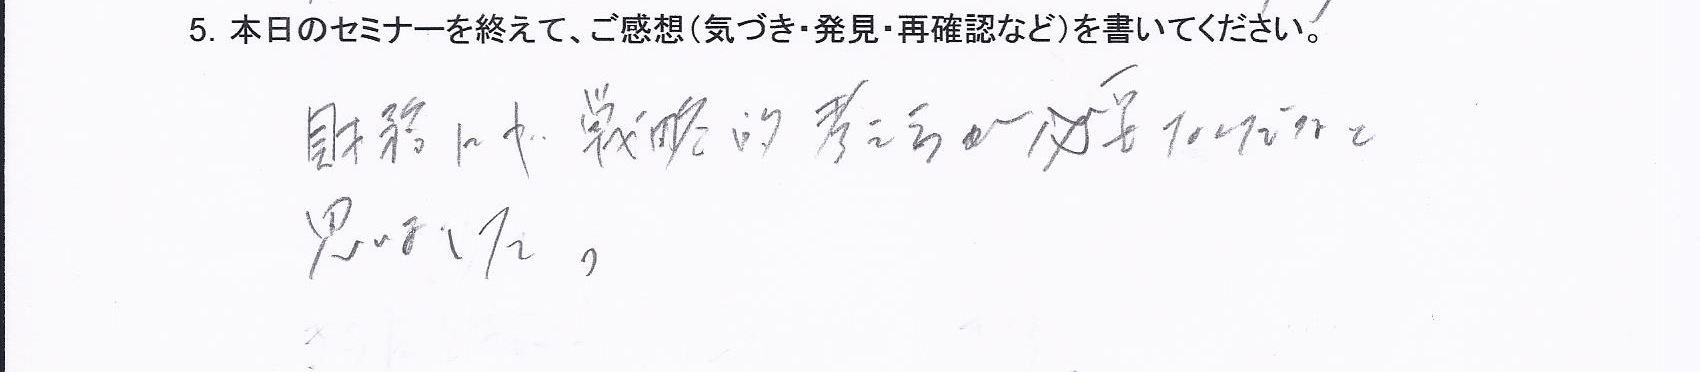 5. 本日のセミナーを終えて、ご感想(気づき・発見・再確認など)を書いてください。
財務にも戦略的考え方が必要なんだなと
思いました。